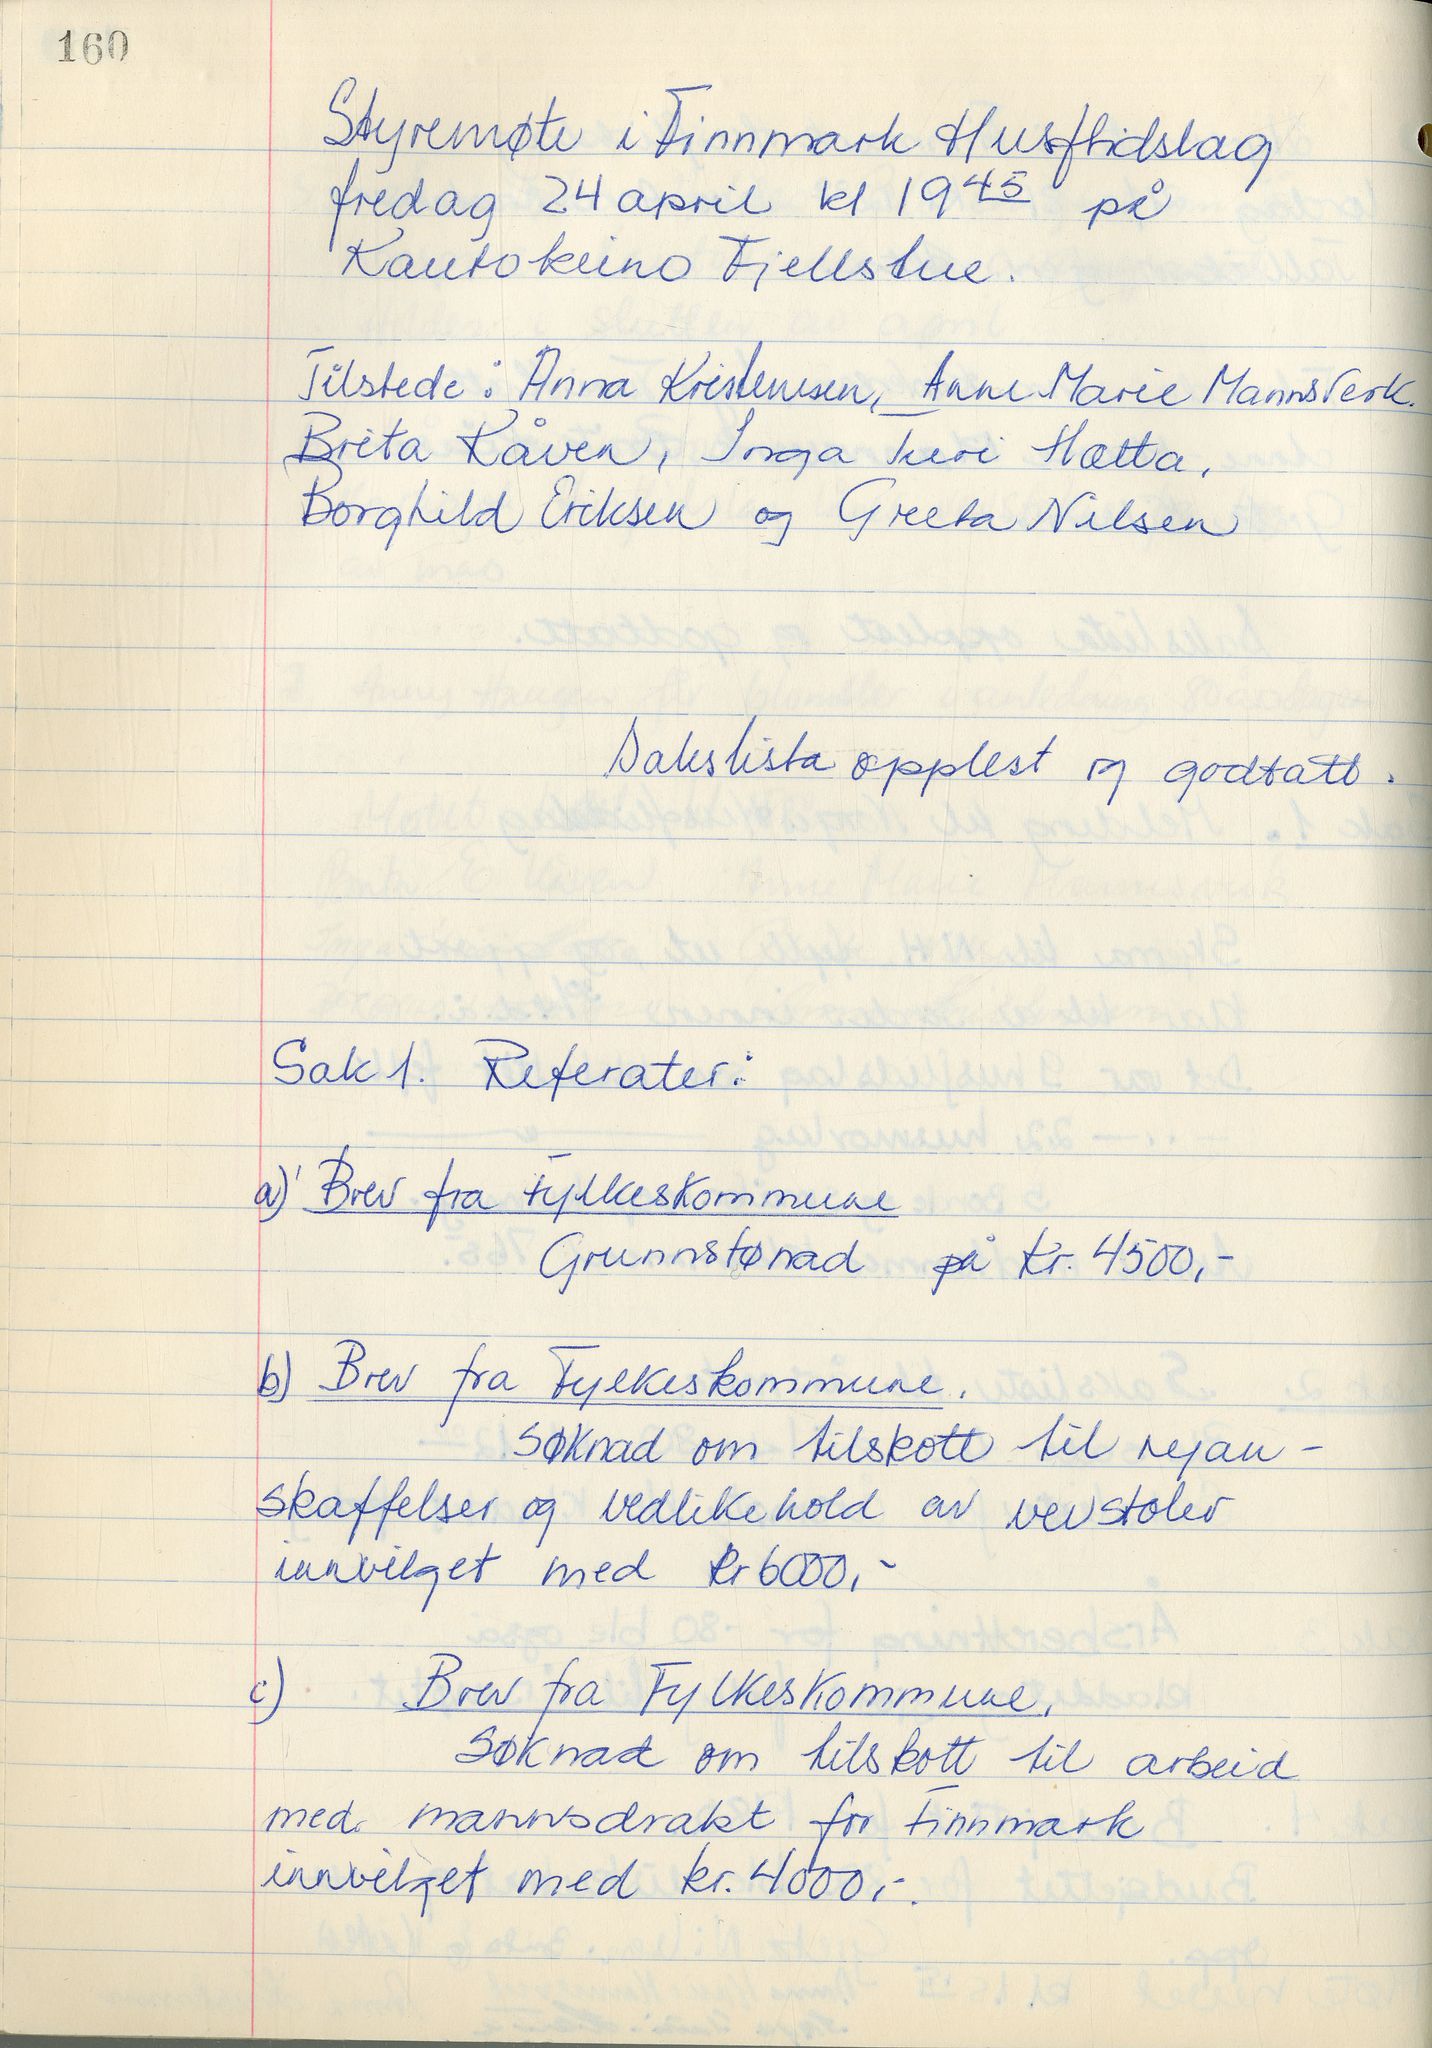 160
Styremøte i Finnmark Husflidslag
fredag 24 april kl 19 45 på
Kautokeino Fjellstue.
Tilstede: Anna Kristensen, Anne Marie Mannsverk.
Brita Kåven, Inga Turi Hætta,
Borghild Eriksen og Greeta Nilsen
Sakslista opplest og godtatt.
Sak 1. Referater:
a) Brev fra Fylkeskommune
Grunnstønad på kr. 4500,-
b) Brev fra Fylkeskommune.
Søknad om tilskott til nyan-
skaffelser og vedlikehold av vevstoler
innvilget med kr 6000,-
c) Brev fra Fylkeskommune.
Søknad om tilskott til arbeid
med mannsdrakt for Finnmark
innvilget med kr. 4000,-.